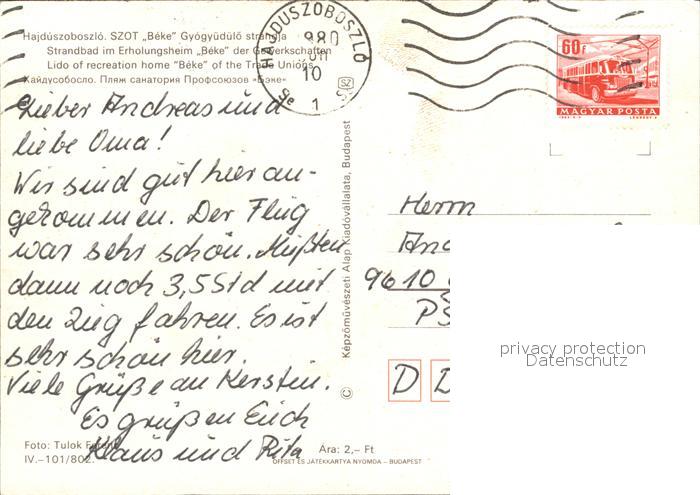 Hajdúszoboszló. SZOT „Béke” Gyógyüdülő strandja
Strandbad im Erholungsheim „Béke” der Gewerkschaften
Lido of recreation home "Béke" of the Trade Unions
Хайдусобосло. Пляж санатория Профсоюзов «Бэке»
HAJDUSZOBOSZLÓ
980
10
1
60f
MAGYAR POSTA
Lieber Andreas und
liebe Oma!
Wir sind gut hier an-
gekommen. Der Flug
war sehr schön. Mußten
dann noch 3,5 Std mit
den Zug fahren. Es ist
sehr schön hier.
Viele Grüße an Kerstin.
Es grüßen Euch
Klaus und Rita
Képzőművészeti Alap Kiadóvállalata, Budapest
©
Herrn
And
9610
D
privacy protection
Datenschutz
Foto: Tulok Ferenc
IV.–101/802
Ára: 2,– Ft
OFFSET ÉS JÁTÉKKÁRTYA NYOMDA – BUDAPEST